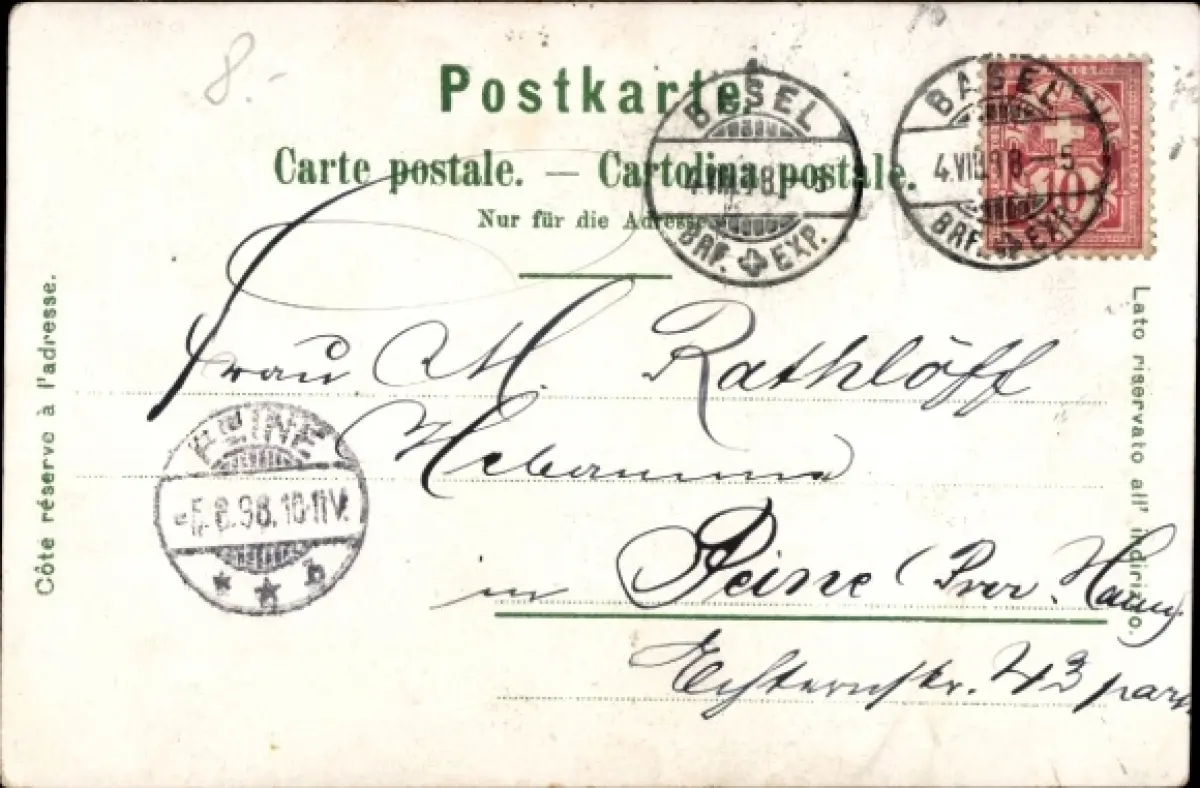 8.-
Postkarte.
Carte postale. — Cartolina postale.
Nur für die Adresse.
BASEL
4.VIII.98.-5
BRF. EXP.
BASEL
4.VIII.98.-5
BRF. EXP.
HELVETIA
10
Côte réserve à l'adresse.
Lato riservato all' indirizzo.
Frau M. Rathlöff
Hebamme
in Peine (Prov. Hann.
Echternstr. 43 part
PEINE
-5.8.98.10-11V.
* * b